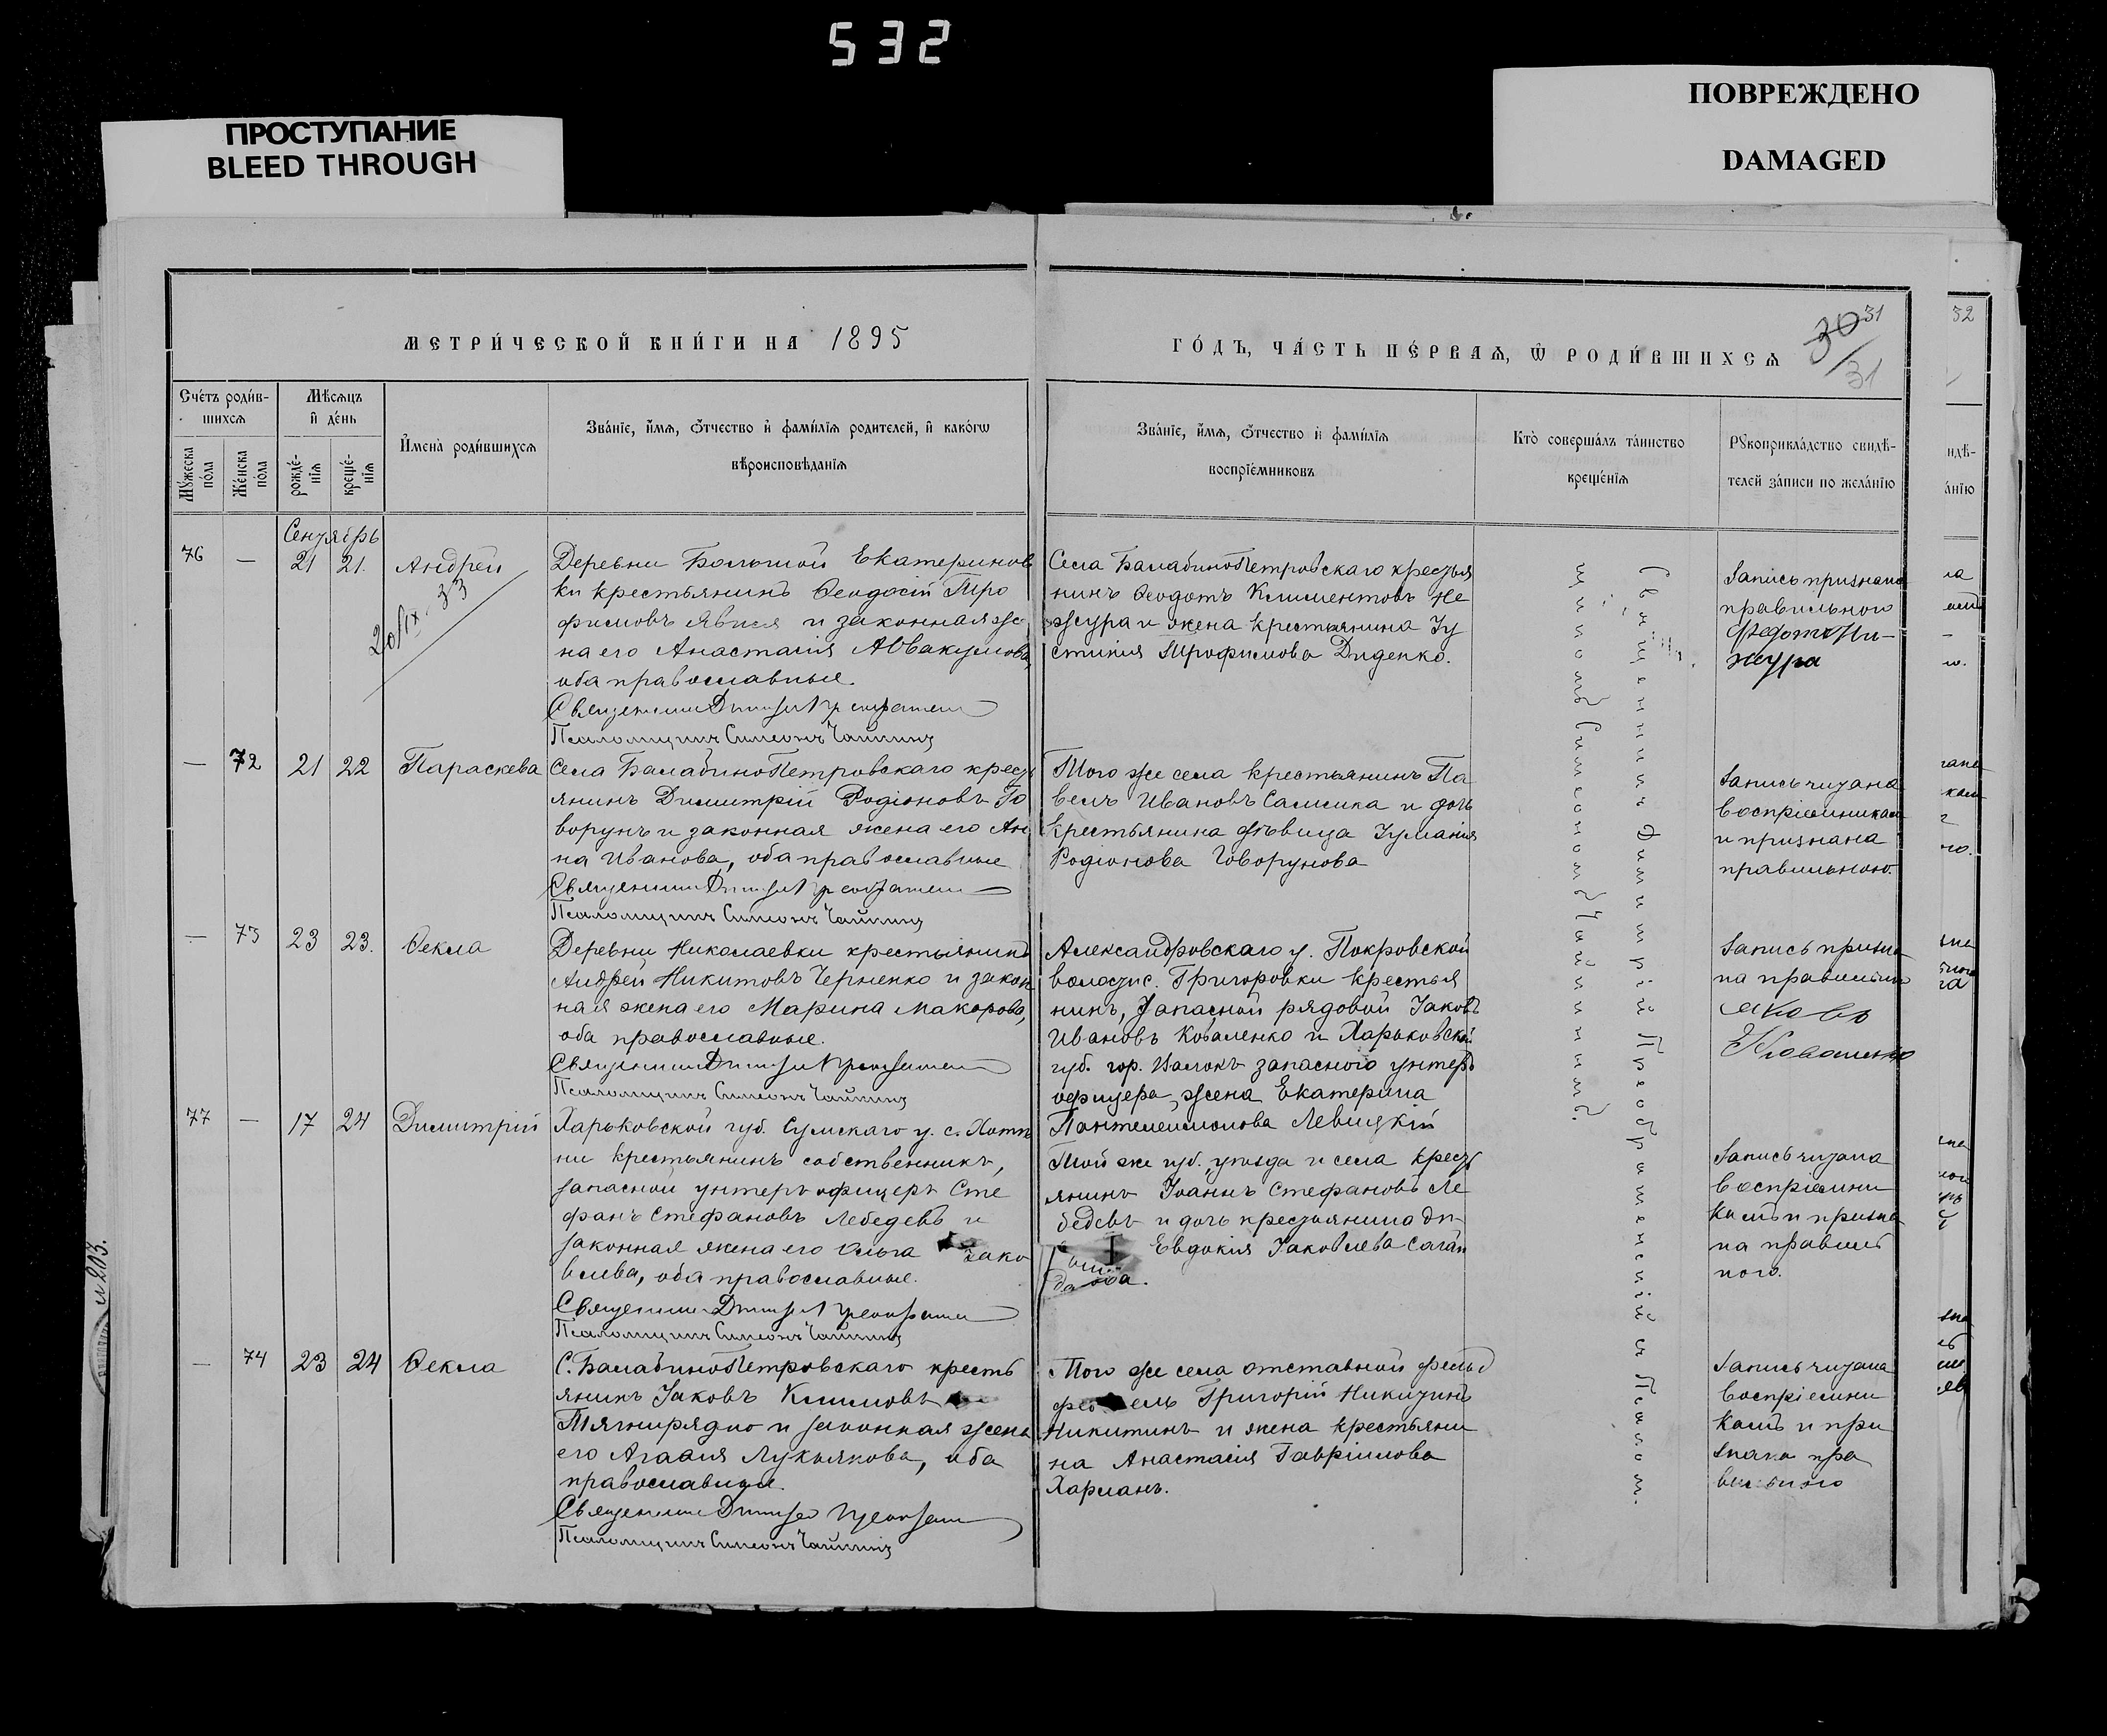 532
ПРОСТУПАНИЕ
BLEED THROUGH
ПОВРЕЖДЕНО
DAMAGED
МЕТРИ́ЧЕСКОЙ КНИ́ГИ НА 1895
ГО́ДЪ, ЧА́СТЬ ПЕ́РВАѦ, Ѿ РОДИ́ВШИХСѦ
30 31
31
Сче́тъ роди́в-
шихсѧ
Мѣсѧцъ
и҆ де́нь
Му́жеска по́ла
Же́нска по́ла
рожде́-
нїѧ
креще́-
нїѧ
И҆мена̀ роди́вшихсѧ
Зва́нїе, и҆́мѧ, ѻ҆́тчество и҆ фами́лїѧ родителей, и҆ како́гѡ
вѣроисповѣ́данїѧ
Зва́нїе, и҆́мѧ, ѻ҆́тчество и҆ фами́лїѧ
воспрїе́мниковъ
Кто̀ соверша́лъ та́инство
креще́нїѧ
Рꙋкоприкла́дство свидѣ́-
телей за́писи по жела́нїю
Сентябрь
76 — 21 21. Андрей
Деревни Большой Екатеринов
ки крестьянинъ Ѳеодосій Тро
фимовъ Явися и законная же
на его Анастасія Аввакумова,
оба православные.
Священникъ Димитрій Преображенскій
Псаломщикъ Симеонъ Чайкинъ
Села БалабиноПетровскаго крестья
нинъ Ѳеодотъ Климентовъ Не
жура и жена крестьянина Іу
стинія Трофимова Диденко.
Запись признана
правильною
Федотъ Ни-
жура
— 72 21 22 Параскева
Села БалабиноПетровскаго кресть
янинъ Димитрій Родіоновъ Го
ворунъ и законная жена его Ан
на Иванова, оба православные
Священникъ Димитрій Преображенскій
Псаломщикъ Симеонъ Чайкинъ
Того же села крестьянинъ Па
велъ Ивановъ Самсика и дочь
крестьянина дѣвица Іуліанія
Родіонова Говорунова
Запись читана
воспріемникам
и признана
правильною.
— 73 23 23. Ѳекла
Деревни Николаевки крестьянинъ
Андрей Никитовъ Черненко и закон
ная жена его Марина Макарова,
оба православные.
Священникъ Димитрій Преображенскій
Псаломщикъ Симеонъ Чайкинъ
Александровскаго у. Покровской
волости с. Григоровки крестья
нинъ, запасной рядовой Іаковъ
Ивановъ Коваленко и Харьковской
губ. гор. запаснаго унтеръ
офицера жена Екатерина
Пантелеимонова Левицкій
Запись призна
на правильн
Яковъ
Коваленко
77 — 17 24 Димитрій
Харьковской губ. Сумскаго у. с. Хотѣ
ни крестьянинъ собственникъ,
запасной унтеръ офицеръ Сте
фанъ Стефановъ Лебедевъ и
законная жена его Ольга Іако
влева, оба православные.
Священникъ Димитрій Преображенскій
Псаломщикъ Симеонъ Чайкинъ
Той же губ., уѣзда и села кресть
янинъ Іоаннъ Стефановъ Ле
бедевъ и дочь крестьянина дѣ
Евдокія Іаковлева Саган
Запись читана
воспріемни
камъ и призна
на правиль
ною.
— 74 23 24 Ѳекла
С. БалабиноПетровскаго кресть
янинъ Іаковъ Климовъ
Тягнирядно и законная жена
его Агаѳія Лукьянова, оба
православные.
Священникъ Димитрій Преображенскій
Псаломщикъ Симеонъ Чайкинъ
Того же села отставной фельд
фебель Григорій Никитинъ
Никитинъ и жена крестьяни
на Анастасія Гавріилова
Харланъ.
Запись читана
воспріемни
камъ и при
знана пра
вильною
Священникъ Димитрій Преображенскій съ Псалом.
щикомъ Симеономъ Чайкинымъ.